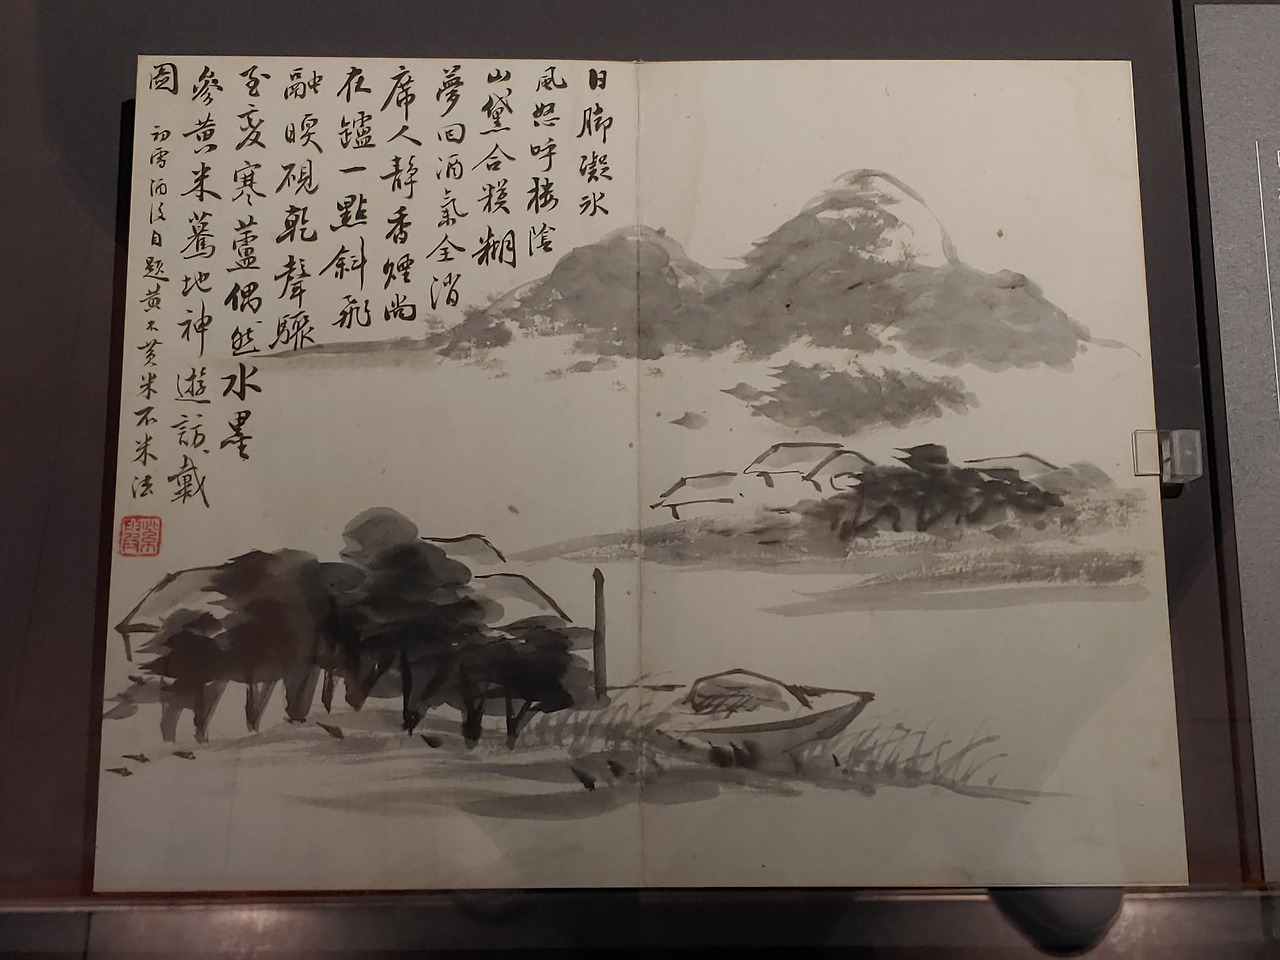 日腳凝冰
風怒呼樓陰
山黛合糢糊
夢回酒氣全消
席人靜香煙尚
在鑪一點斜飛
融暝硯乾聲驟
至変寒蘆偶然水墨
參黄米驀地神遊訪戴
圖
初雪酒後自題黄不黄米不米法